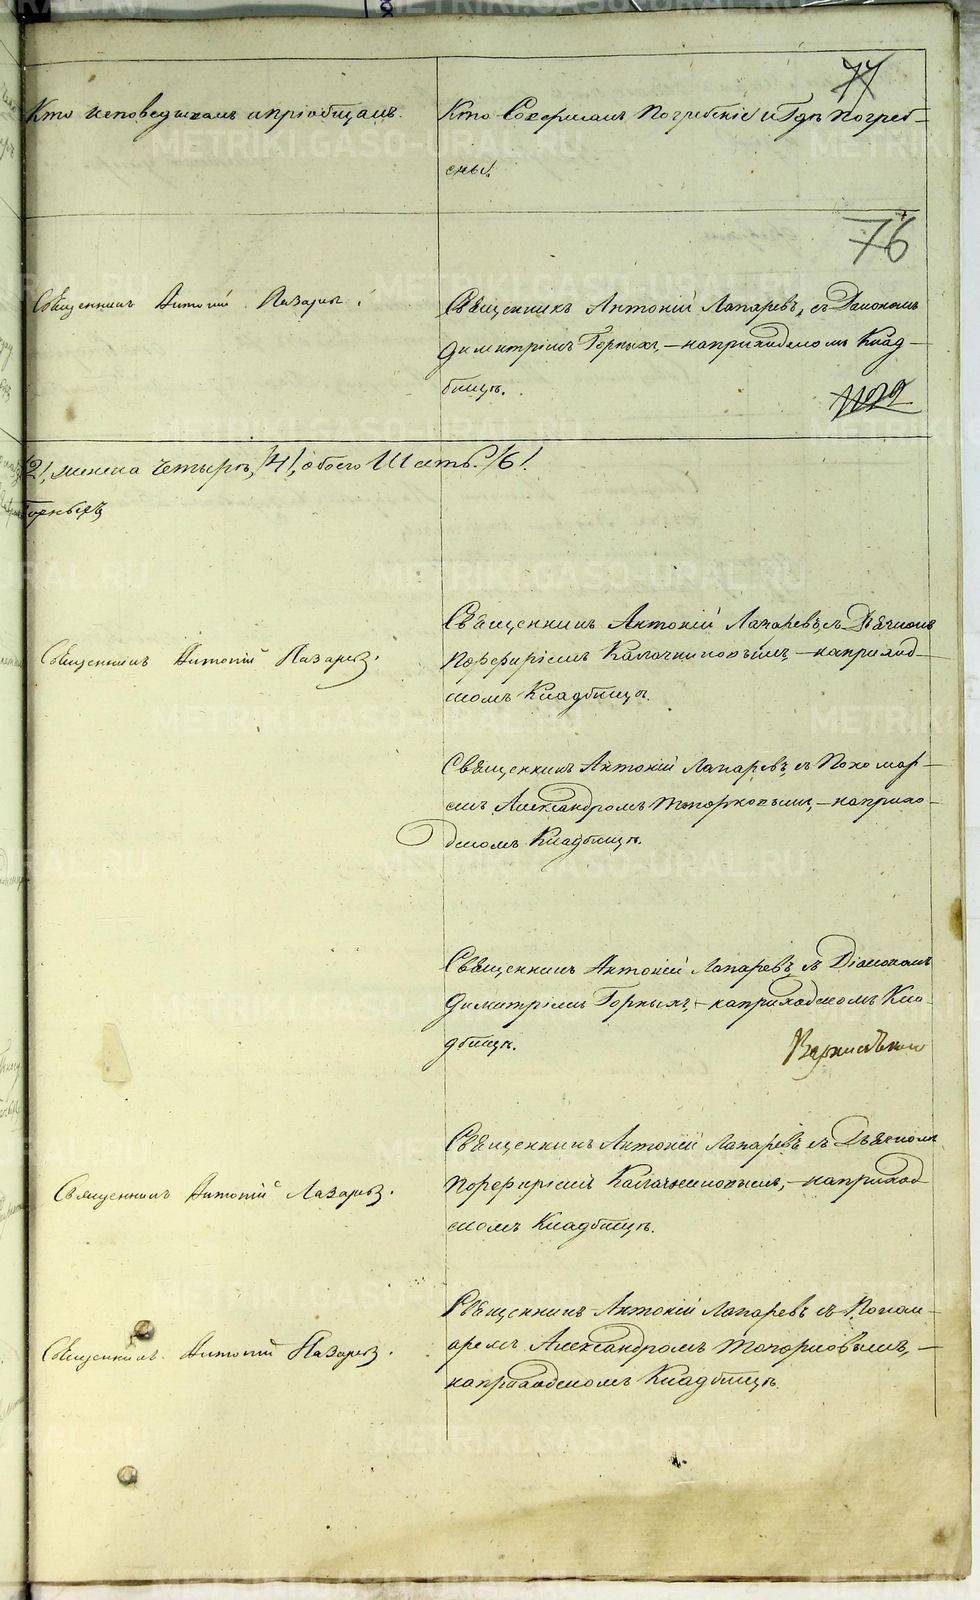 77
Кто исповедывалъ и пріобщалъ.
Кто Совершалъ Погребеніе и Гдѣ Погреб-
ены.
76
Священникъ Антоній Лазаревъ.
Священникъ Антоній Лазаревъ, съ Діакономъ
Димитріемъ Горныхъ, – на приходскомъ Клад-
бищѣ.
/2/, женска четыре, /4/, обоего Шесть. /6/.
Горныхъ
Священникъ Антоній Лазаревъ.
Священникъ Антоній Лазаревъ, съ Дьячкомъ
Порфиріемъ – на приход-
скомъ Кладбищѣ.
Священникъ Антоній Лазаревъ, съ Пономар-
емъ Александромъ Топорковымъ, – на прихо-
дскомъ Кладбищѣ.
Священникъ Антоній Лазаревъ, съ Діакономъ
Димитріемъ Горныхъ, – на приходскомъ Кла-
дбищѣ.
Священникъ Антоній Лазаревъ.
Священникъ Антоній Лазаревъ съ Дьячкомъ
Порфиріемъ – на приход-
скомъ Кладбищѣ.
Священникъ Антоній Лазаревъ.
Священникъ Антоній Лазаревъ съ Поном-
аремъ Александромъ Топорковымъ, –
на приходскомъ Кладбищѣ.
METRIKI.GASO-URAL.RU